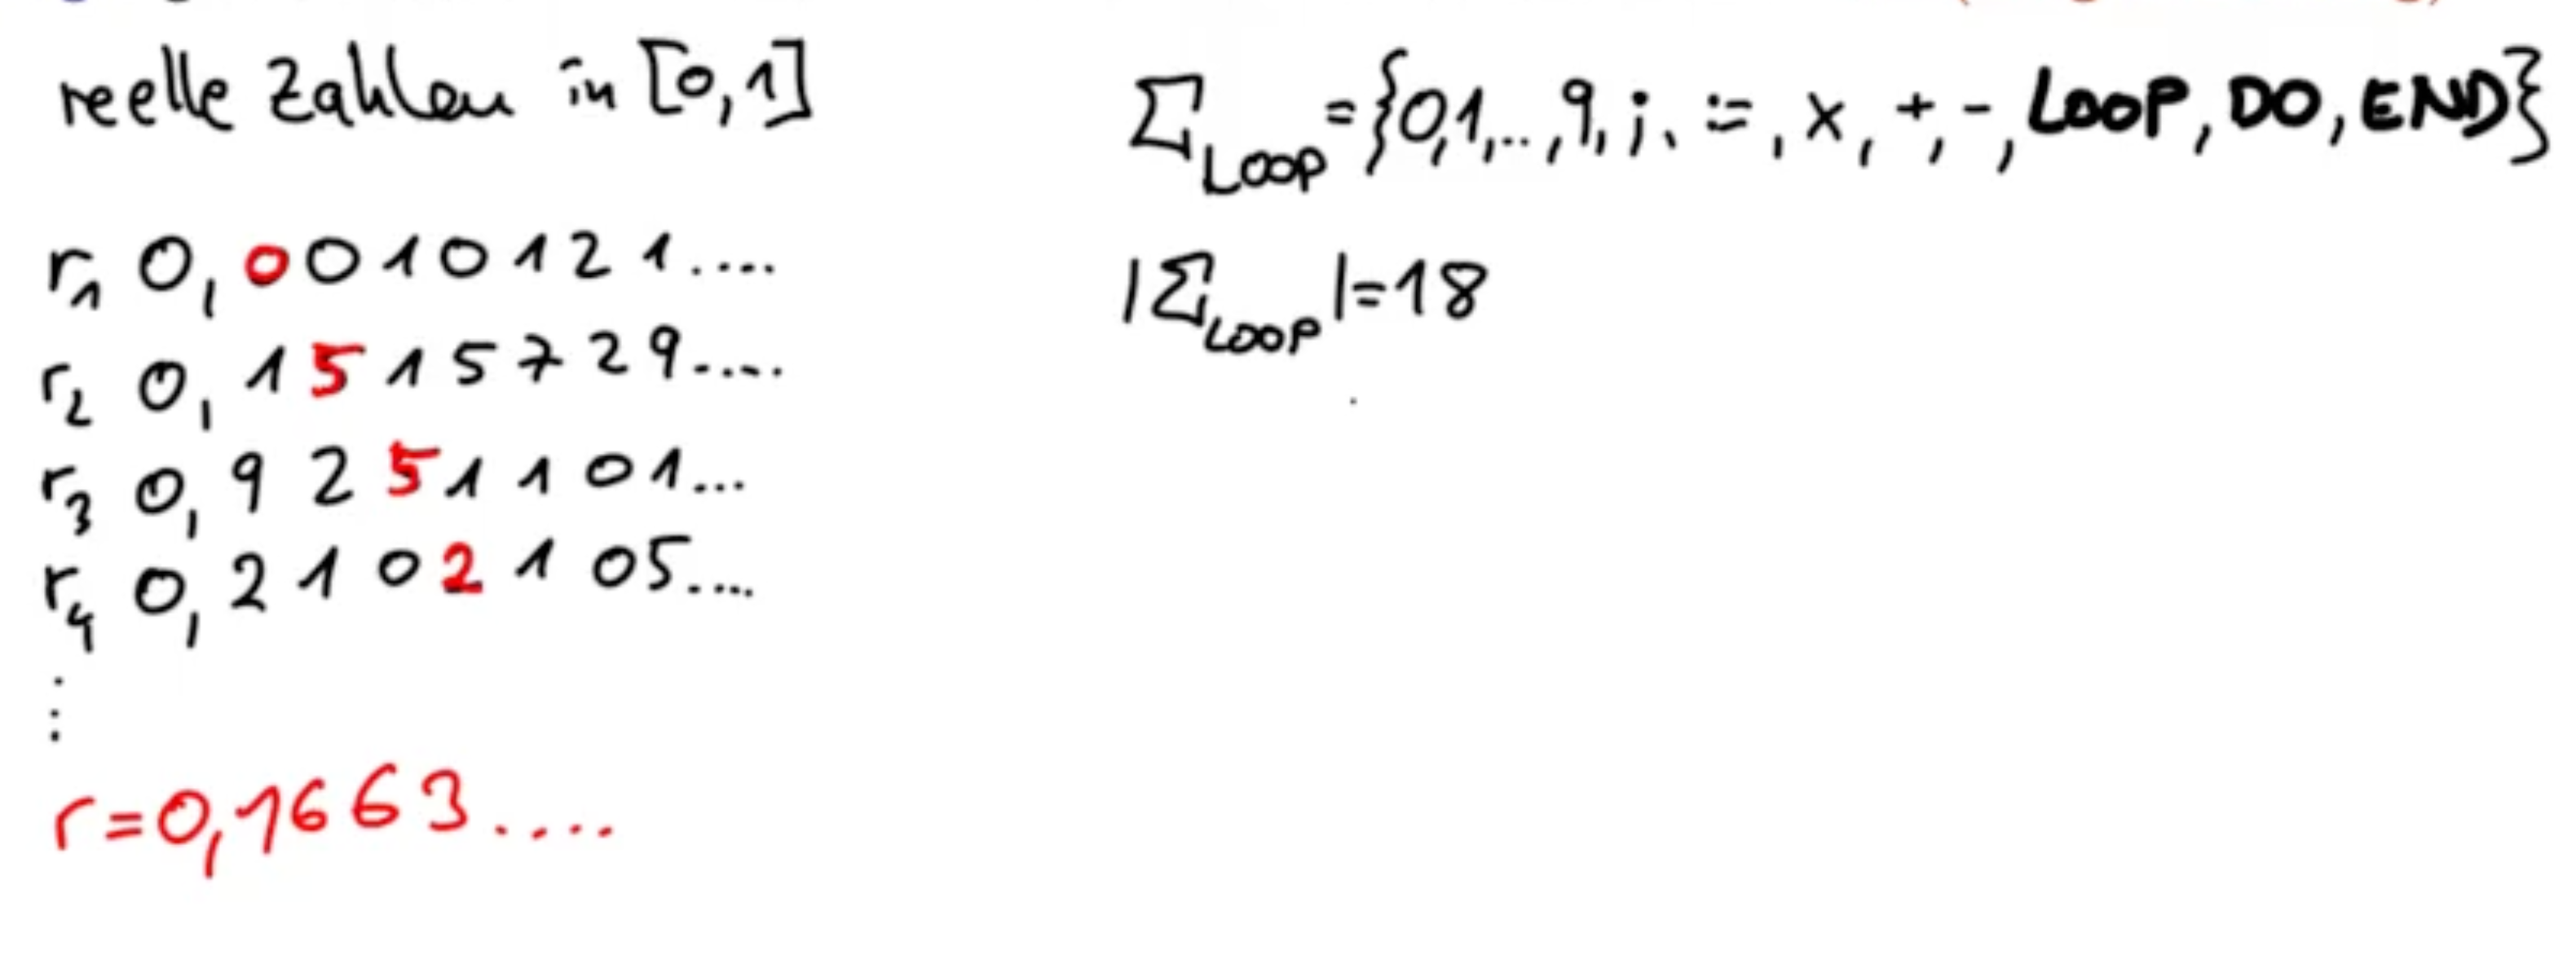 reelle Zahlen in [0,1]
r₁ 0,0010121....
r₂ 0,1515729....
r₃ 0,9251101...
r₄ 0,2102105....
⋮
r=0,1663....
Σ_LOOP={0,1,..,9,;,:=,x,+,-,LOOP,DO,END}
|Σ_LOOP|=18